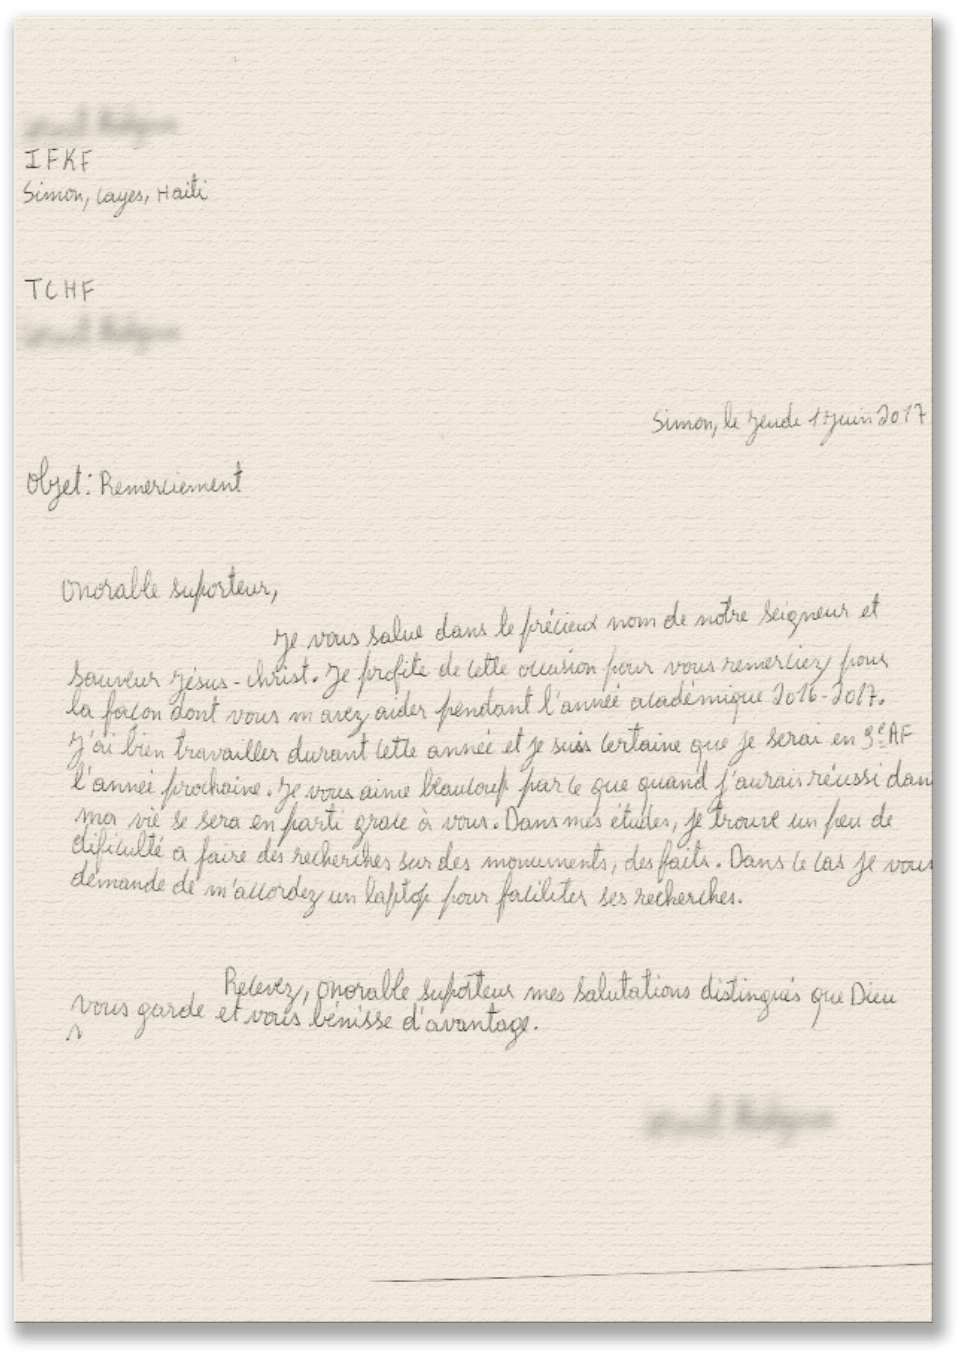 IFKF
Simon, Cayes, Haiti
TCHF
Simon, le Jeude 1 Juin 2017
Objet: Remerciement
Onorable suporteur,
Je vous salue dans le précieux nom de notre Seigneur et
Sauveur Jésus-Christ. Je profite de cette occasion pour vous remerciez pour
la façon dont vous m'avez aider pendant l'année académique 2016-2017.
J'ai bien travailler durant cette année et je suis certaine que je serai en 9e AF
l'année prochaine. Je vous aime beaucoup parce que quand j'aurais réussi dan
ma vie se sera en parti grace à vous. Dans mes études, je trouve un peu de
dificulté a faire des recherches sur des monuments, des faits. Dans ce cas je vous
demande de m'accordez un laptop pour faciliter ses recherches.
Recevez, Onorable suporteur mes Salutations distingués que Dieu
vous garde et vous bénisse d'avantage.